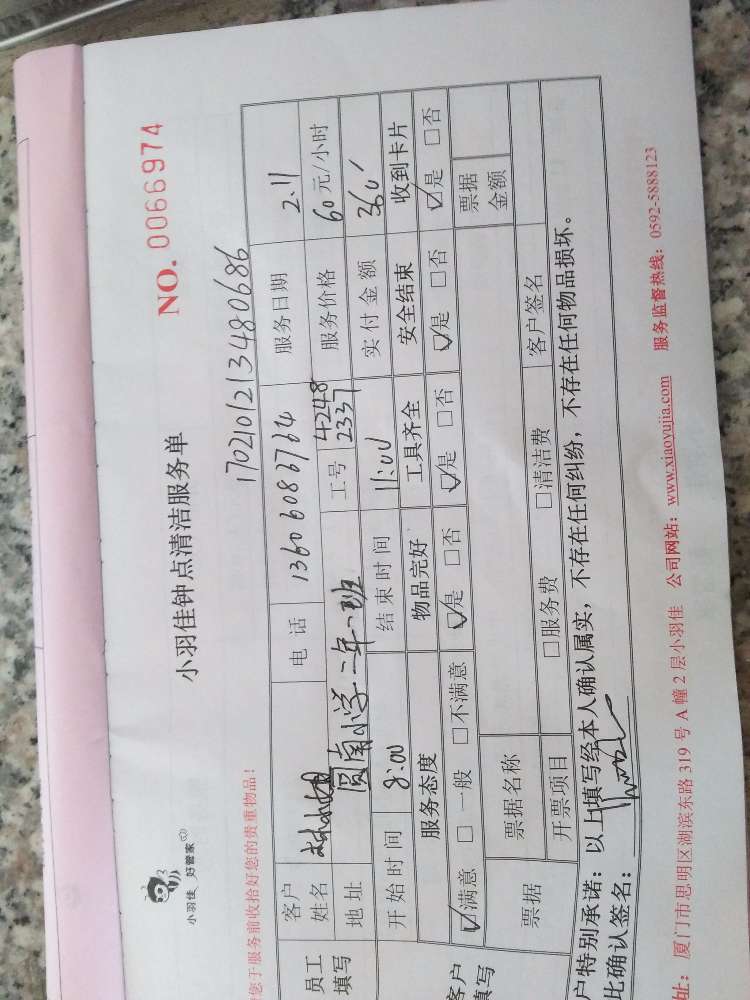 小羽佳 好管家
小羽佳钟点清洁服务单
NO. 0066974
您于服务前收拾好您的贵重物品!
170210121348 0686
员工填写
客户姓名
电 话 13606083764
服务日期 2.11
地址 圆南小学二年一班
工号 4248 2337
服务价格 60元/小时
开始时间 8:00
结束时间 11:00
实付金额 360
服务态度 物品完好 工具齐全 安全结束 收到卡片
客户填写
☑满意 □一般 □不满意 ☑是 □否 ☑是 □否 ☑是 □否 ☑是 □否
票据 票据名称 票据金额
开票项目 □服务费 □清洁费 客户签名
户特别承诺:以上填写经本人确认属实,不存在任何纠纷,不存在任何物品损坏。
比确认签名:
址:厦门市思明区湖滨东路 319 号 A 幢 2 层小羽佳 公司网站:www.xiaoyujia.com 服务监督热线:0592-5888123